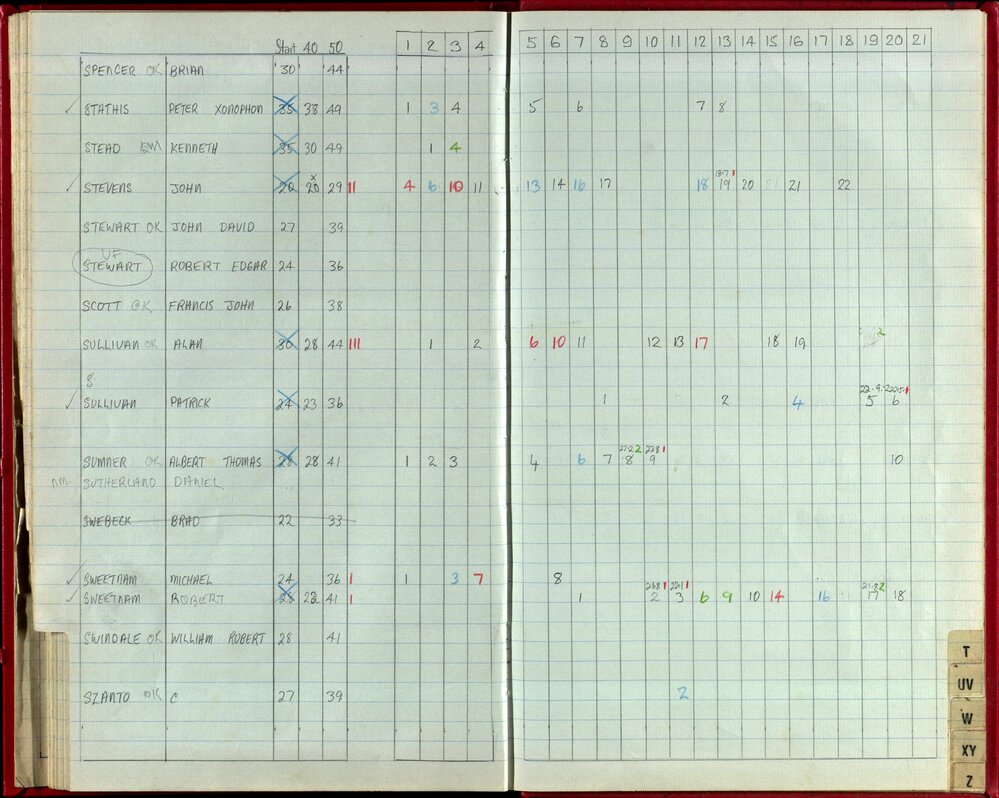 Start 40 50 1 2 3 4 5 6 7 8 9 10 11 12 13 14 15 16 17 18 19 20 21
SPENCER OK BRIAN 30 44
✓ STATHIS PETER XONOPHON 35 38 49 1 3 4 5 6 7 8
STEAD KENNETH 35 30 49 1 4
x 18·7 1
✓ STEVENS JOHN 20 20 29 11 4 6 10 11 13 14 16 17 18 19 20 21 21 22
STEWART OK JOHN DAVID 27 39
UF
STEWART ROBERT EDGAR 24 36
SCOTT OK FRANCIS JOHN 26 38
2
SULLIVAN OK ALAN 30 28 44 111 1 2 6 10 11 12 13 17 18 19
8
22·9·2 1
✓ SULLIVAN PATRICK 24 23 36 1 2 4 5 6
2 1
SUMNER OK ALBERT THOMAS 28 28 41 1 2 3 4 6 7 8 9 10
nm SUTHERLAND DANIEL
SWEBECK BRAD 22 33
✓ SWEETNAM MICHAEL 24 36 1 1 3 7 8
1 1 2
✓ SWEETNAM ROBERT 28 22 41 1 1 2 3 6 9 10 14 16 17 18
SWINDALE OK WILLIAM ROBERT 28 41
SZANTO OK C 27 39 2
T
UV
W
XY
Z